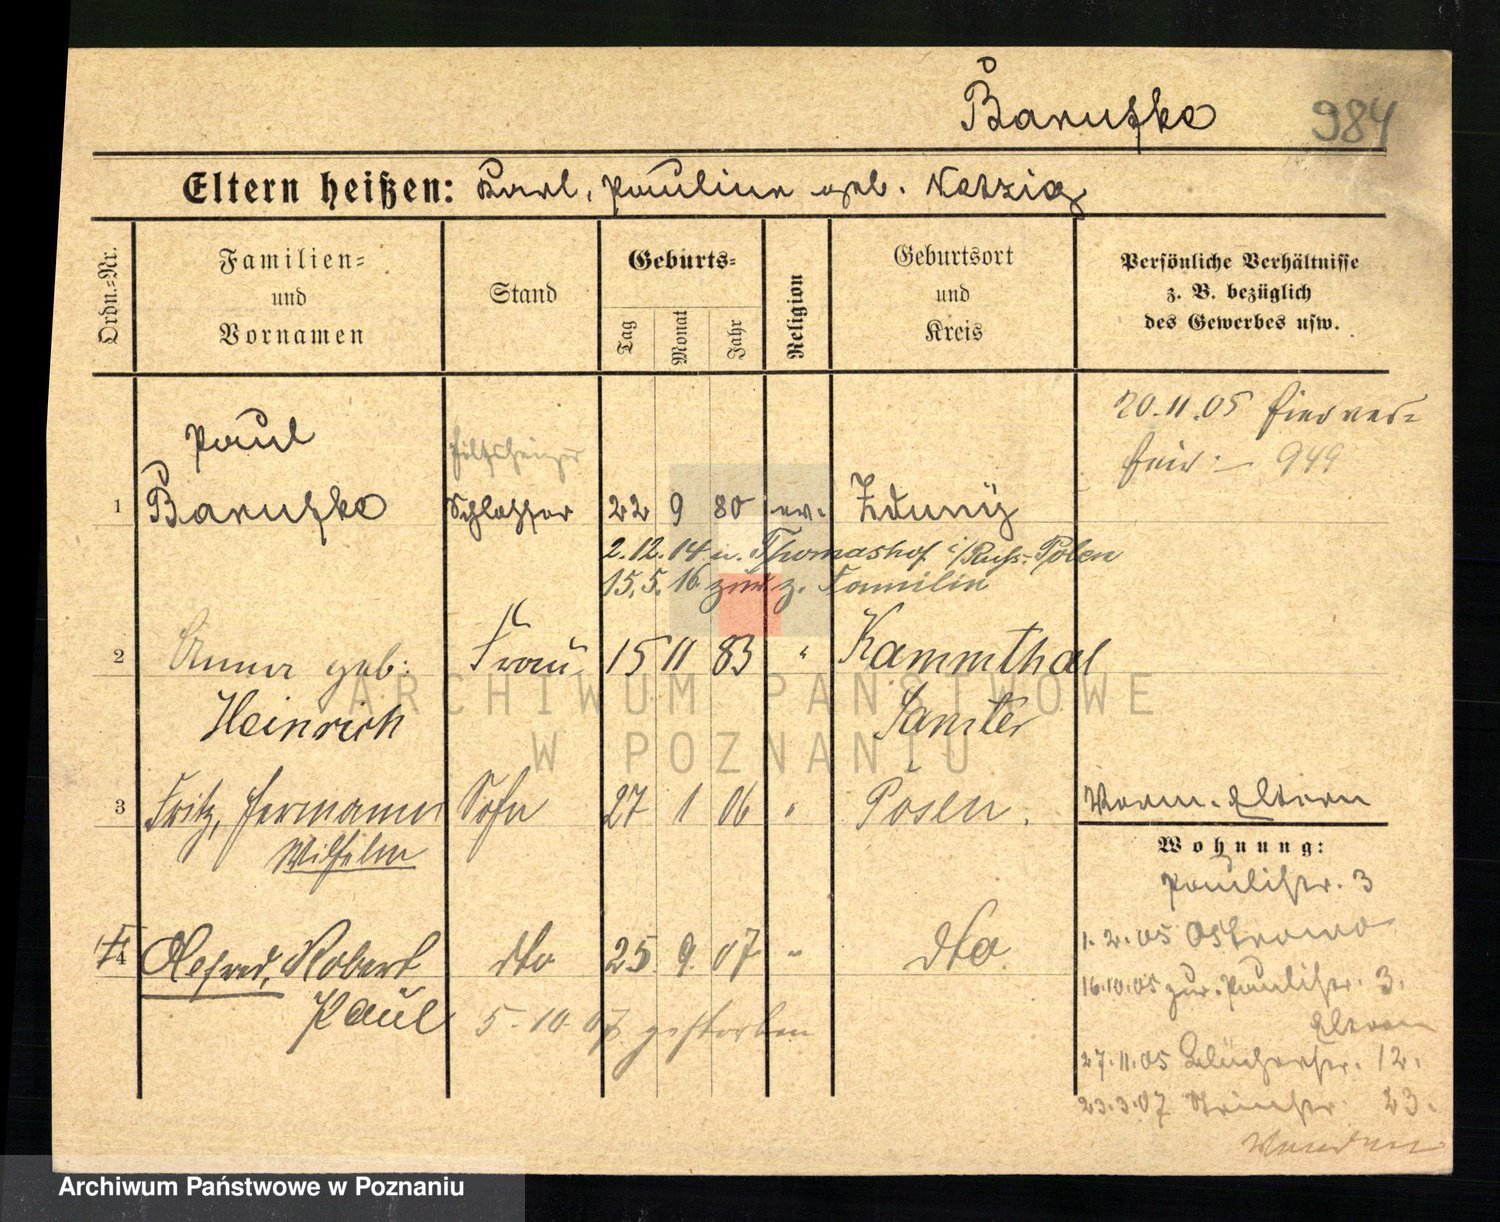 Barutzke
984
Eltern heißen: Karl, Pauline geb. Netzig
Ordn.-Nr.
Familien-
und
Vornamen
Stand
Geburts-
Tag
Monat
Jahr
Religion
Geburtsort
und
Kreis
Persönliche Verhältnisse
z. B. bezüglich
des Gewerbes usw.
20.11.05 hier ver-
heir. 949
Paul
1 Barutzke Schlosser 22 9 80 ev. Zduny
2.12.14 n. Thomashof i/Russ. Polen
15.5.16 zur. z. Familie
2 Anna geb: Frau 15 11 83 " Kammthal
Heinrich Samter
3 Fritz, Hermann Sohn 27 1 06 " Posen.
Wilhelm
4 Alfred, Robert dto 25. 9. 07 " dto
Paul 5.10.07 gestorben
Eltern
Wohnung:
Paulistr. 3
1.2.05 Ostrowo
16.10.05 zur. Paulistr. 3.
Eltern
27.11.05 Blücherstr. 12.
23.3.07 23.
ARCHIWUM PAŃSTWOWE
W POZNANIU
Archiwum Państwowe w Poznaniu